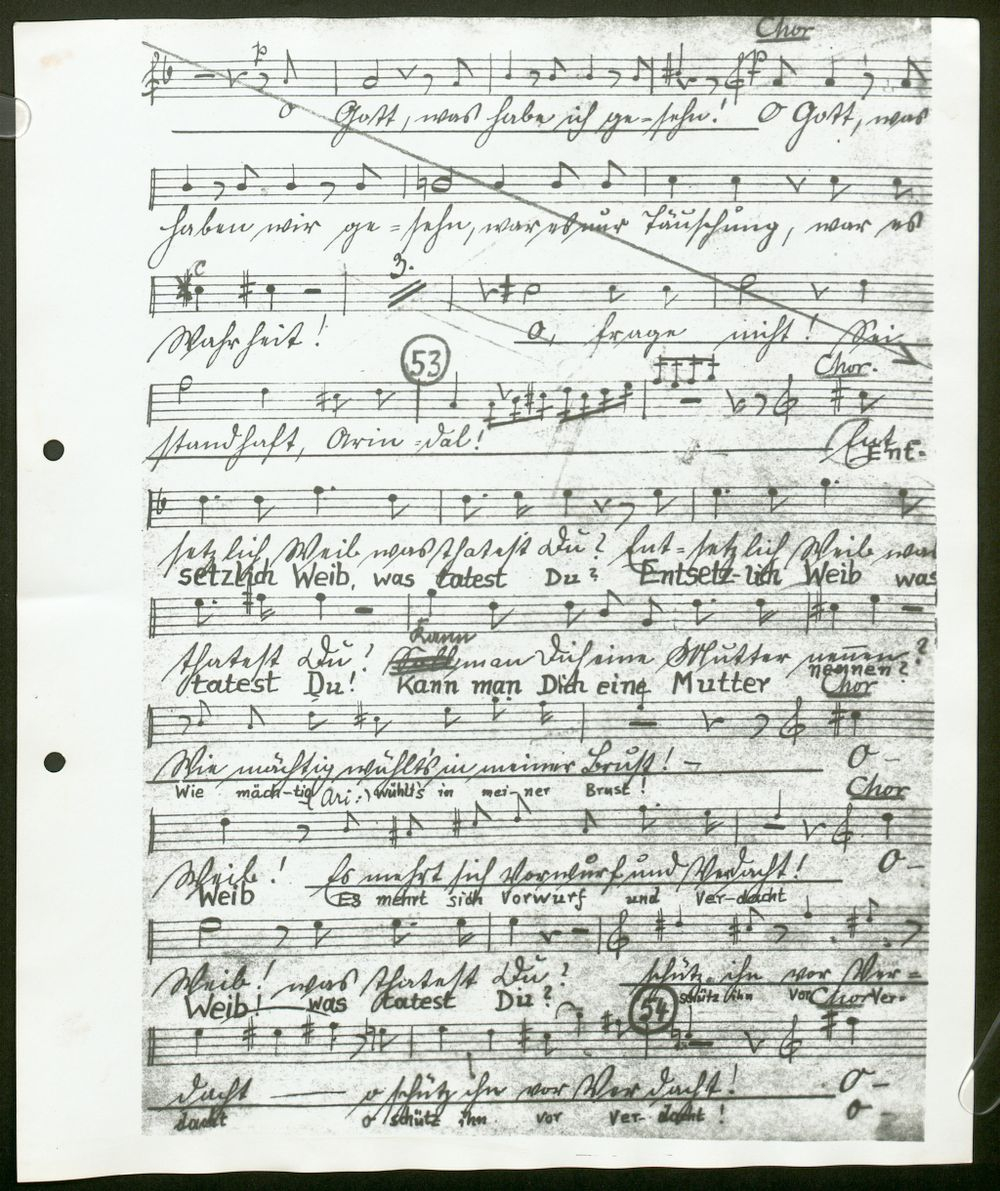 Chor
p p
O Gott, was habe ich ge-sehn! O Gott, was
haben wir ge-sehn, war es nur Täuschung, war es
c 3.
Wahrheit! O, frage nicht! Sei
53 Chor.
standhaft, Arin-dal! Ent-
Ent-
setzlich Weib was thatest Du? Ent-setzlich Weib was
setzlich Weib, was tatest Du? Entsetz-lich Weib was
Kann
thatest Du? man Dich eine Mutter nennen?
nennen?
tatest Du! Kann man Dich eine Mutter Chor
Wie mächtig wühlt's in meiner Brust! – O –
Wie mäch-tig (Ari:) wühlt's in mei-ner Brust! Chor
Weib! Es mehrt sich Vorwurf und Verdacht! O –
Weib Es mehrt sich Vorwurf und Ver-dacht
Weib! was thatest Du? schütz ihn vor Ver-
Weib! was tatest Du? 54 schütz ihn vor Chor Ver-
dacht — o schütz ihn vor Verdacht! O –
dacht o schütz ihn vor Ver-dacht! O –